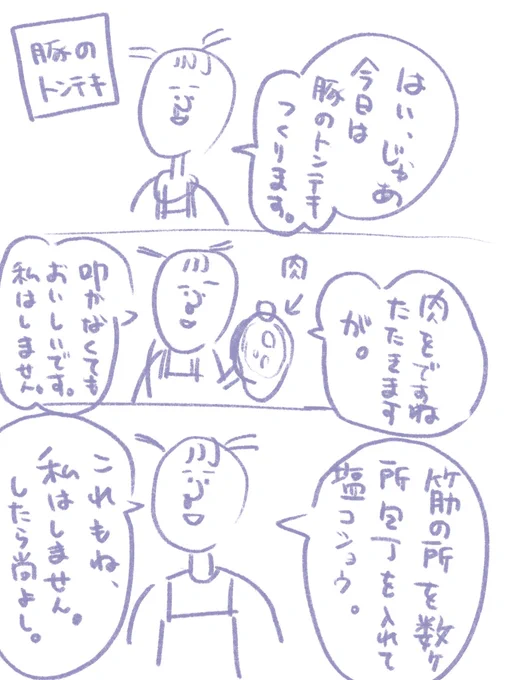 豚の
トンテキ
はい、じゃあ
今日は
豚のトンテキ
つくります。
肉をですね
たたきます
が。
肉
叩かなくても
おいしいです。
私はしません。
筋の所を数ヶ
所包丁を入れて
塩コショウ。
これもね、
私はしません。
したら尚よし。